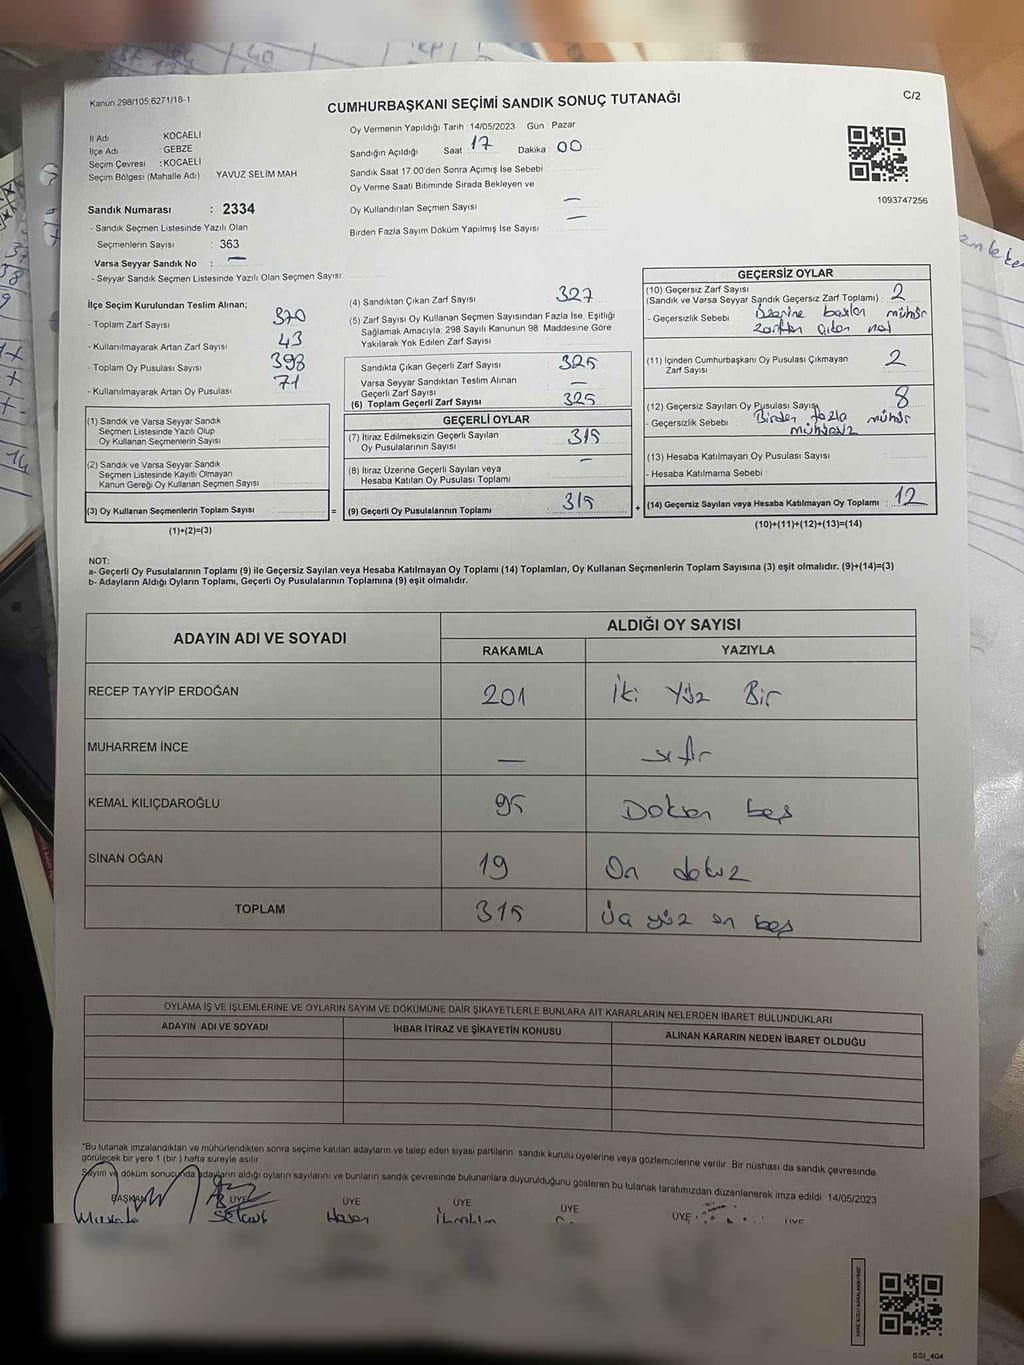 Kanun.298/105.6271/16-1
CUMHURBAŞKANI SEÇİMİ SANDIK SONUÇ TUTANAĞI
C/2
İl Adı KOCAELİ
İlçe Adı GEBZE
Seçim Çevresi : KOCAELİ
Seçim Bölgesi (Mahalle Adı) YAVUZ SELİM MAH
Oy Vermenin Yapıldığı Tarih 14/05/2023 Gün : Pazar
Sandığın Açıldığı Saat 17 Dakika 00
Sandık Saat 17.00'den Sonra Açımış İse Sebebi
Oy Verme Saati Bitiminde Sırada Bekleyen ve
Oy Kullandırılan Seçmen Sayısı —
Birden Fazla Sayım Döküm Yapılmış İse Sayısı —
1093747256
Sandık Numarası : 2334
- Sandık Seçmen Listesinde Yazılı Olan
Seçmenlerin Sayısı : 363
Varsa Seyyar Sandık No : —
- Seyyar Sandık Seçmen Listesinde Yazılı Olan Seçmen Sayısı:
İlçe Seçim Kurulundan Teslim Alınan;
- Toplam Zarf Sayısı 370
- Kullanılmayarak Artan Zarf Sayısı 43
- Toplam Oy Pusulası Sayısı 398
- Kullanılmayarak Artan Oy Pusulası 71
(1) Sandık ve Varsa Seyyar Sandık
Seçmen Listesinde Yazılı Olup
Oy Kullanan Seçmenlerin Sayısı
(2) Sandık ve Varsa Seyyar Sandık
Seçmen Listesinde Kayıtlı Olmayan
Kanun Gereği Oy Kullanan Seçmen Sayısı
(3) Oy Kullanan Seçmenlerin Toplam Sayısı =
(1)+(2)=(3)
(4) Sandıktan Çıkan Zarf Sayısı 327
(5) Zarf Sayısı Oy Kullanan Seçmen Sayısından Fazla İse, Eşitliği
Sağlamak Amacıyla; 298 Sayılı Kanunun 98 Maddesine Göre
Yakılarak Yok Edilen Zarf Sayısı
Sandıkta Çıkan Geçerli Zarf Sayısı 325
Varsa Seyyar Sandıktan Teslim Alınan
Geçerli Zarf Sayısı —
(6) Toplam Geçerli Zarf Sayısı 325
GEÇERLİ OYLAR
(7) İtiraz Edilmeksizin Geçerli Sayılan
Oy Pusulalarının Sayısı 315
(8) İtiraz Üzerine Geçerli Sayılan veya
Hesaba Katılan Oy Pusulası Toplamı —
(9) Geçerli Oy Pusulalarının Toplamı 315 +
GEÇERSİZ OYLAR
(10) Geçersiz Zarf Sayısı
(Sandık ve Varsa Seyyar Sandık Geçersiz Zarf Toplamı) : 2
- Geçersizlik Sebebi : Üzerine basılan mühür
zarftan çıkan
(11) İçinden Cumhurbaşkanı Oy Pusulası Çıkmayan
Zarf Sayısı 2
(12) Geçersiz Sayılan Oy Pusulası Sayısı 8
- Geçersizlik Sebebi : Birden fazla mühür
mühürsüz
(13) Hesaba Katılmayan Oy Pusulası Sayısı
- Hesaba Katılmama Sebebi
(14) Geçersiz Sayılan veya Hesaba Katılmayan Oy Toplamı : 12
(10)+(11)+(12)+(13)=(14)
NOT:
a- Geçerli Oy Pusulalarının Toplamı (9) ile Geçersiz Sayılan veya Hesaba Katılmayan Oy Toplamı (14) Toplamları, Oy Kullanan Seçmenlerin Toplam Sayısına (3) eşit olmalıdır. (9)+(14)=(3)
b- Adayların Aldığı Oyların Toplamı, Geçerli Oy Pusulalarının Toplamına (9) eşit olmalıdır.
ADAYIN ADI VE SOYADI
ALDIĞI OY SAYISI
RAKAMLA YAZIYLA
RECEP TAYYİP ERDOĞAN 201 İki Yüz Bir
MUHARREM İNCE — sıfır
KEMAL KILIÇDAROĞLU 95 Doksan beş
SİNAN OĞAN 19 On dokuz
TOPLAM 315 Üç yüz on beş
OYLAMA İŞ VE İŞLEMLERİNE VE OYLARIN SAYIM VE DÖKÜMÜNE DAİR ŞİKAYETLERLE BUNLARA AİT KARARLARIN NELERDEN İBARET BULUNDUKLARI
ADAYIN ADI VE SOYADI İHBAR İTİRAZ VE ŞİKAYETİN KONUSU ALINAN KARARIN NEDEN İBARET OLDUĞU
*Bu tutanak imzalandıktan ve mühürlendikten sonra seçime katılan adayların ve talep eden siyasi partilerin sandık kurulu üyelerine veya gözlemcilerine verilir. Bir nüshası da sandık çevresinde
görülecek bir yere 1 (bir ) hafta süreyle asılır.
Sayım ve döküm sonucunda adayların aldığı oyların sayılarını ve bunların sandık çevresinde bulunanlara duyurulduğunu gösteren bu tutanak tarafımızdan düzenlenerek imza edildi. 14/05/2023
BAŞKAN ÜYE ÜYE ÜYE ÜYE ÜYE ÜYE
Mustafa Selçuk Hasan İbrahim
SSİ_404